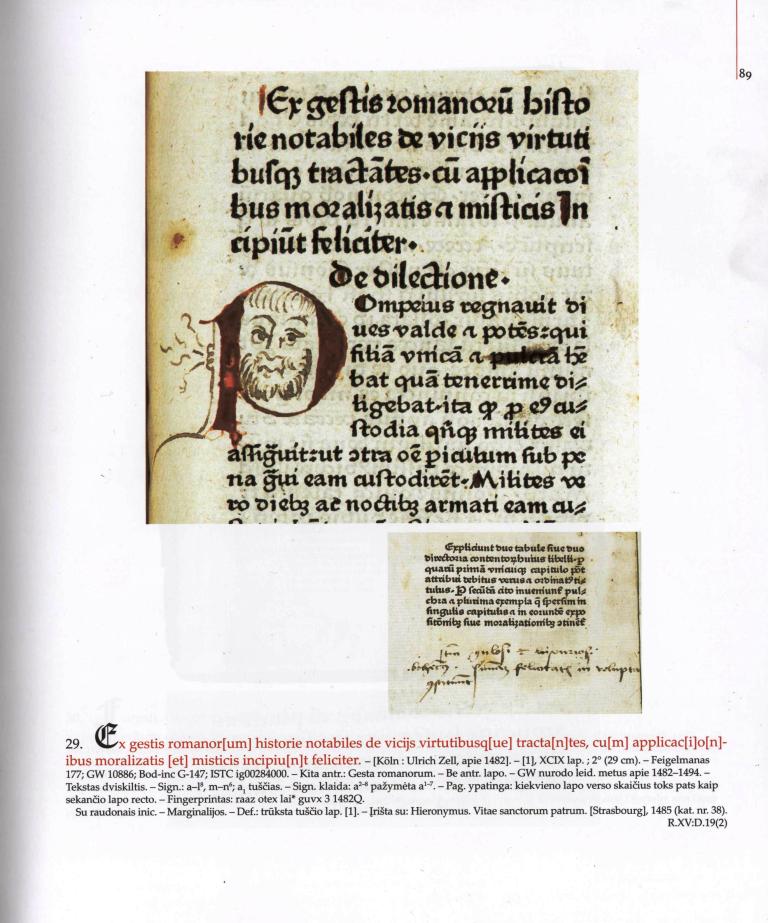 89
Ex gestis romanoꝝ̄ histo
rie notabiles de vicijs virtuti
busqꝫ tractātes·cū applicacoī
bus moralizatis ⁊ misticis In
cipiūt feliciter·
De dilectione·
Pompeius regnauit di
ues valde ⁊ potēs:qui
filiā vnicā ⁊ pulcrā hē
bat quā tenerrime di⸗
ligebat·ita ꝙ ꝓ eꝰ cu⸗
stodia qn̄qꝫ milites ei
assigͣuit:ut ꝯtra oē ꝑiculum sub pe
na gͣui eam custodirēt·Milites ve
ro diebꝫ ac noctibꝫ armati eam cu⸗
Expliciunt due tabule siue duo
directoria contentoꝝ huius libelli·ꝓ
quarū primā vnicuiqꝫ capitulo pōt
attribui debitus verus ⁊ ordinatꝰ ti⸗
tulus·P secūdā cito inueniunt̄ pul⸗
chra ⁊ plurima exempla q̄ sparsim in
singulis capitulis ⁊ in eorundē expo
sitōnibꝫ siue moralizationibꝫ ꝯtinēt̄
felicitatē in volupta
29. Ex gestis romanor[um] historie notabiles de vicijs virtutibusq[ue] tracta[n]tes, cu[m] applicac[i]o[n]-
ibus moralizatis [et] misticis incipiu[n]t feliciter. – [Köln : Ulrich Zell, apie 1482]. – [1], XCIX lap. ; 2° (29 cm). – Feigelmanas
177; GW 10886; Bod-inc G-147; ISTC ig00284000. – Kita antr.: Gesta romanorum. – Be antr. lapo. – GW nurodo leid. metus apie 1482–1494. –
Tekstas dviskiltis. – Sign.: a–l⁸, m–n⁶; a₁ tuščias. – Sign. klaida: a²⁻⁸ pažymėta a¹⁻⁷. – Pag. ypatinga: kiekvieno lapo verso skaičius toks pats kaip
sekančio lapo recto. – Fingerprintas: raaz otex lai* guvx 3 1482Q.
Su raudonais inic. – Marginalijos. – Def.: trūksta tuščio lap. [1]. – Įrišta su: Hieronymus. Vitae sanctorum patrum. [Strasbourg], 1485 (kat. nr. 38).
R.XV:D.19(2)